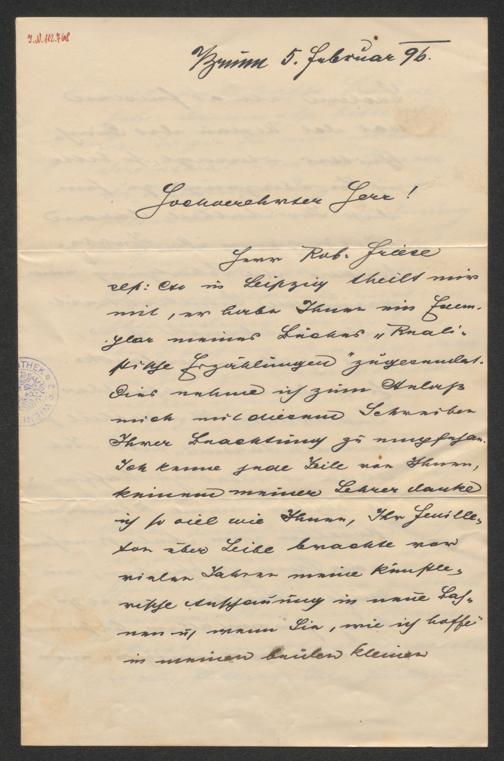 I.N. 112.748
Brünn 5. Februar 96.
Hochverehrter Herr!
Herr Rob. Friese
Sep: Cto in Leipzig theilt mir
mit, er habe Ihnen ein Exem-
plar meines Buches „Reali-
stische Erzählungen" zugesendet.
Dies nehme ich zum Anlaß
mich mit diesem Schreiben
Ihrer Beachtung zu empfehlen.
Ich kenne jede Zeile von Ihnen,
keinem meiner Lehrer danke
ich so viel wie Ihnen, Ihr Feuille-
ton über brachte vor
vielen Jahren meine künstle-
rische Anschauung in neue Bah-
nen u, wenn Sie, wie ich hoffe
in meinen beiden kleinen